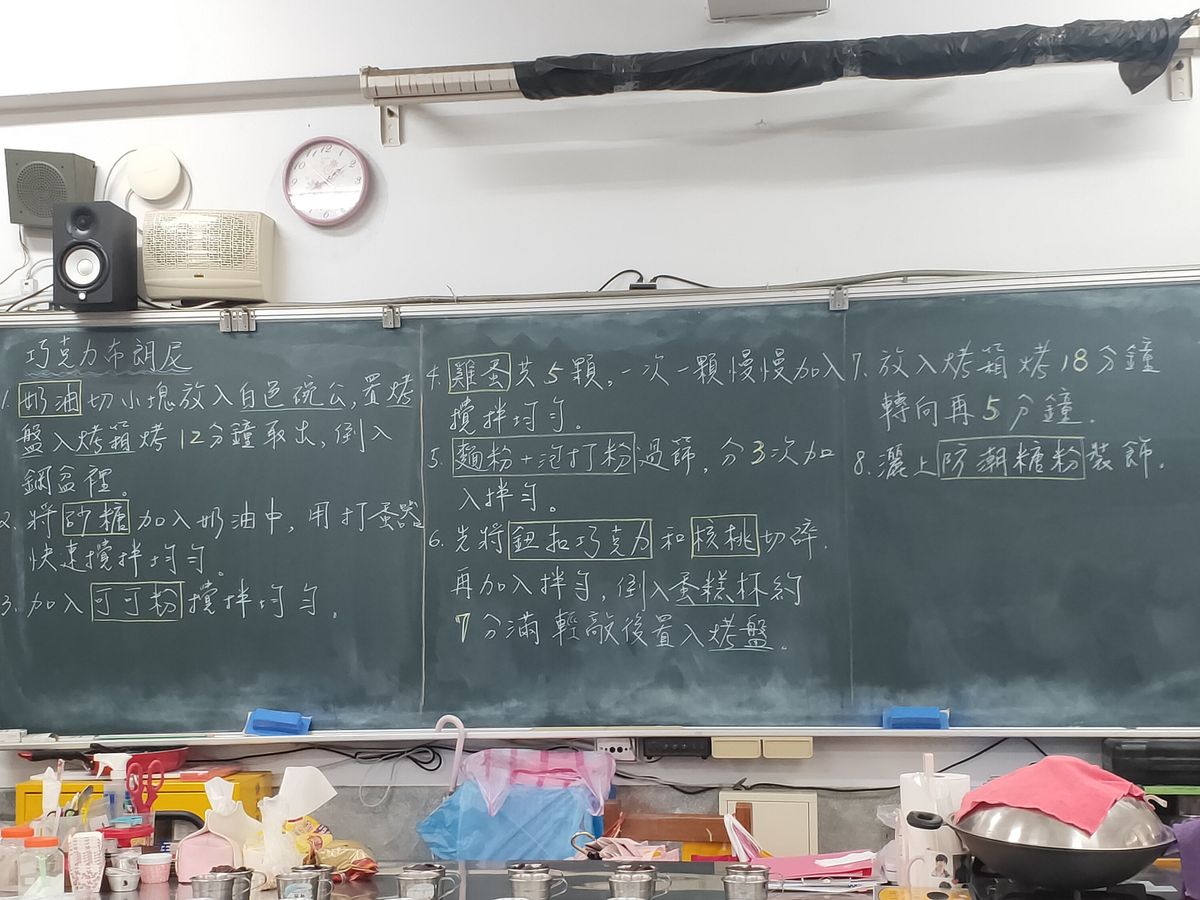 巧克力布朗尼
1. 奶油切小塊放入白色碗公,置烤
盤入烤箱烤12分鐘取出,倒入
鋼盆裡。
2. 將砂糖加入奶油中,用打蛋器
快速攪拌均勻。
3. 加入可可粉攪拌均勻。
4. 雞蛋共5顆,一次一顆慢慢加入
攪拌均勻。
5. 麵粉+泡打粉過篩,分3次加
入拌勻。
6. 先將鈕扣巧克力和核桃切碎.
再加入拌勻,倒入蛋糕杯約
7分滿輕敲後置入烤盤。
7. 放入烤箱烤18分鐘
轉向再5分鐘.
8. 灑上防潮糖粉裝飾.